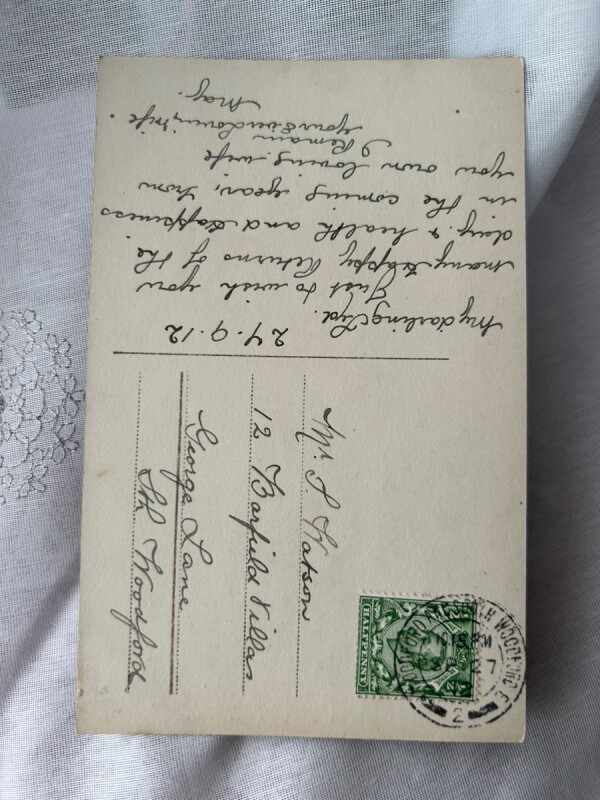 24.9.12
My darling Syd.
Just to wish you
many Happy Returns of the
day & health and Happiness
in the coming year, from
you own loving wife
I Remain
Your Ever Loving wife
May.
Mr. S. Watson
12 Barfield Villas
George Lane
Sth Woodford
HALFPENNY
WOODFORD
2